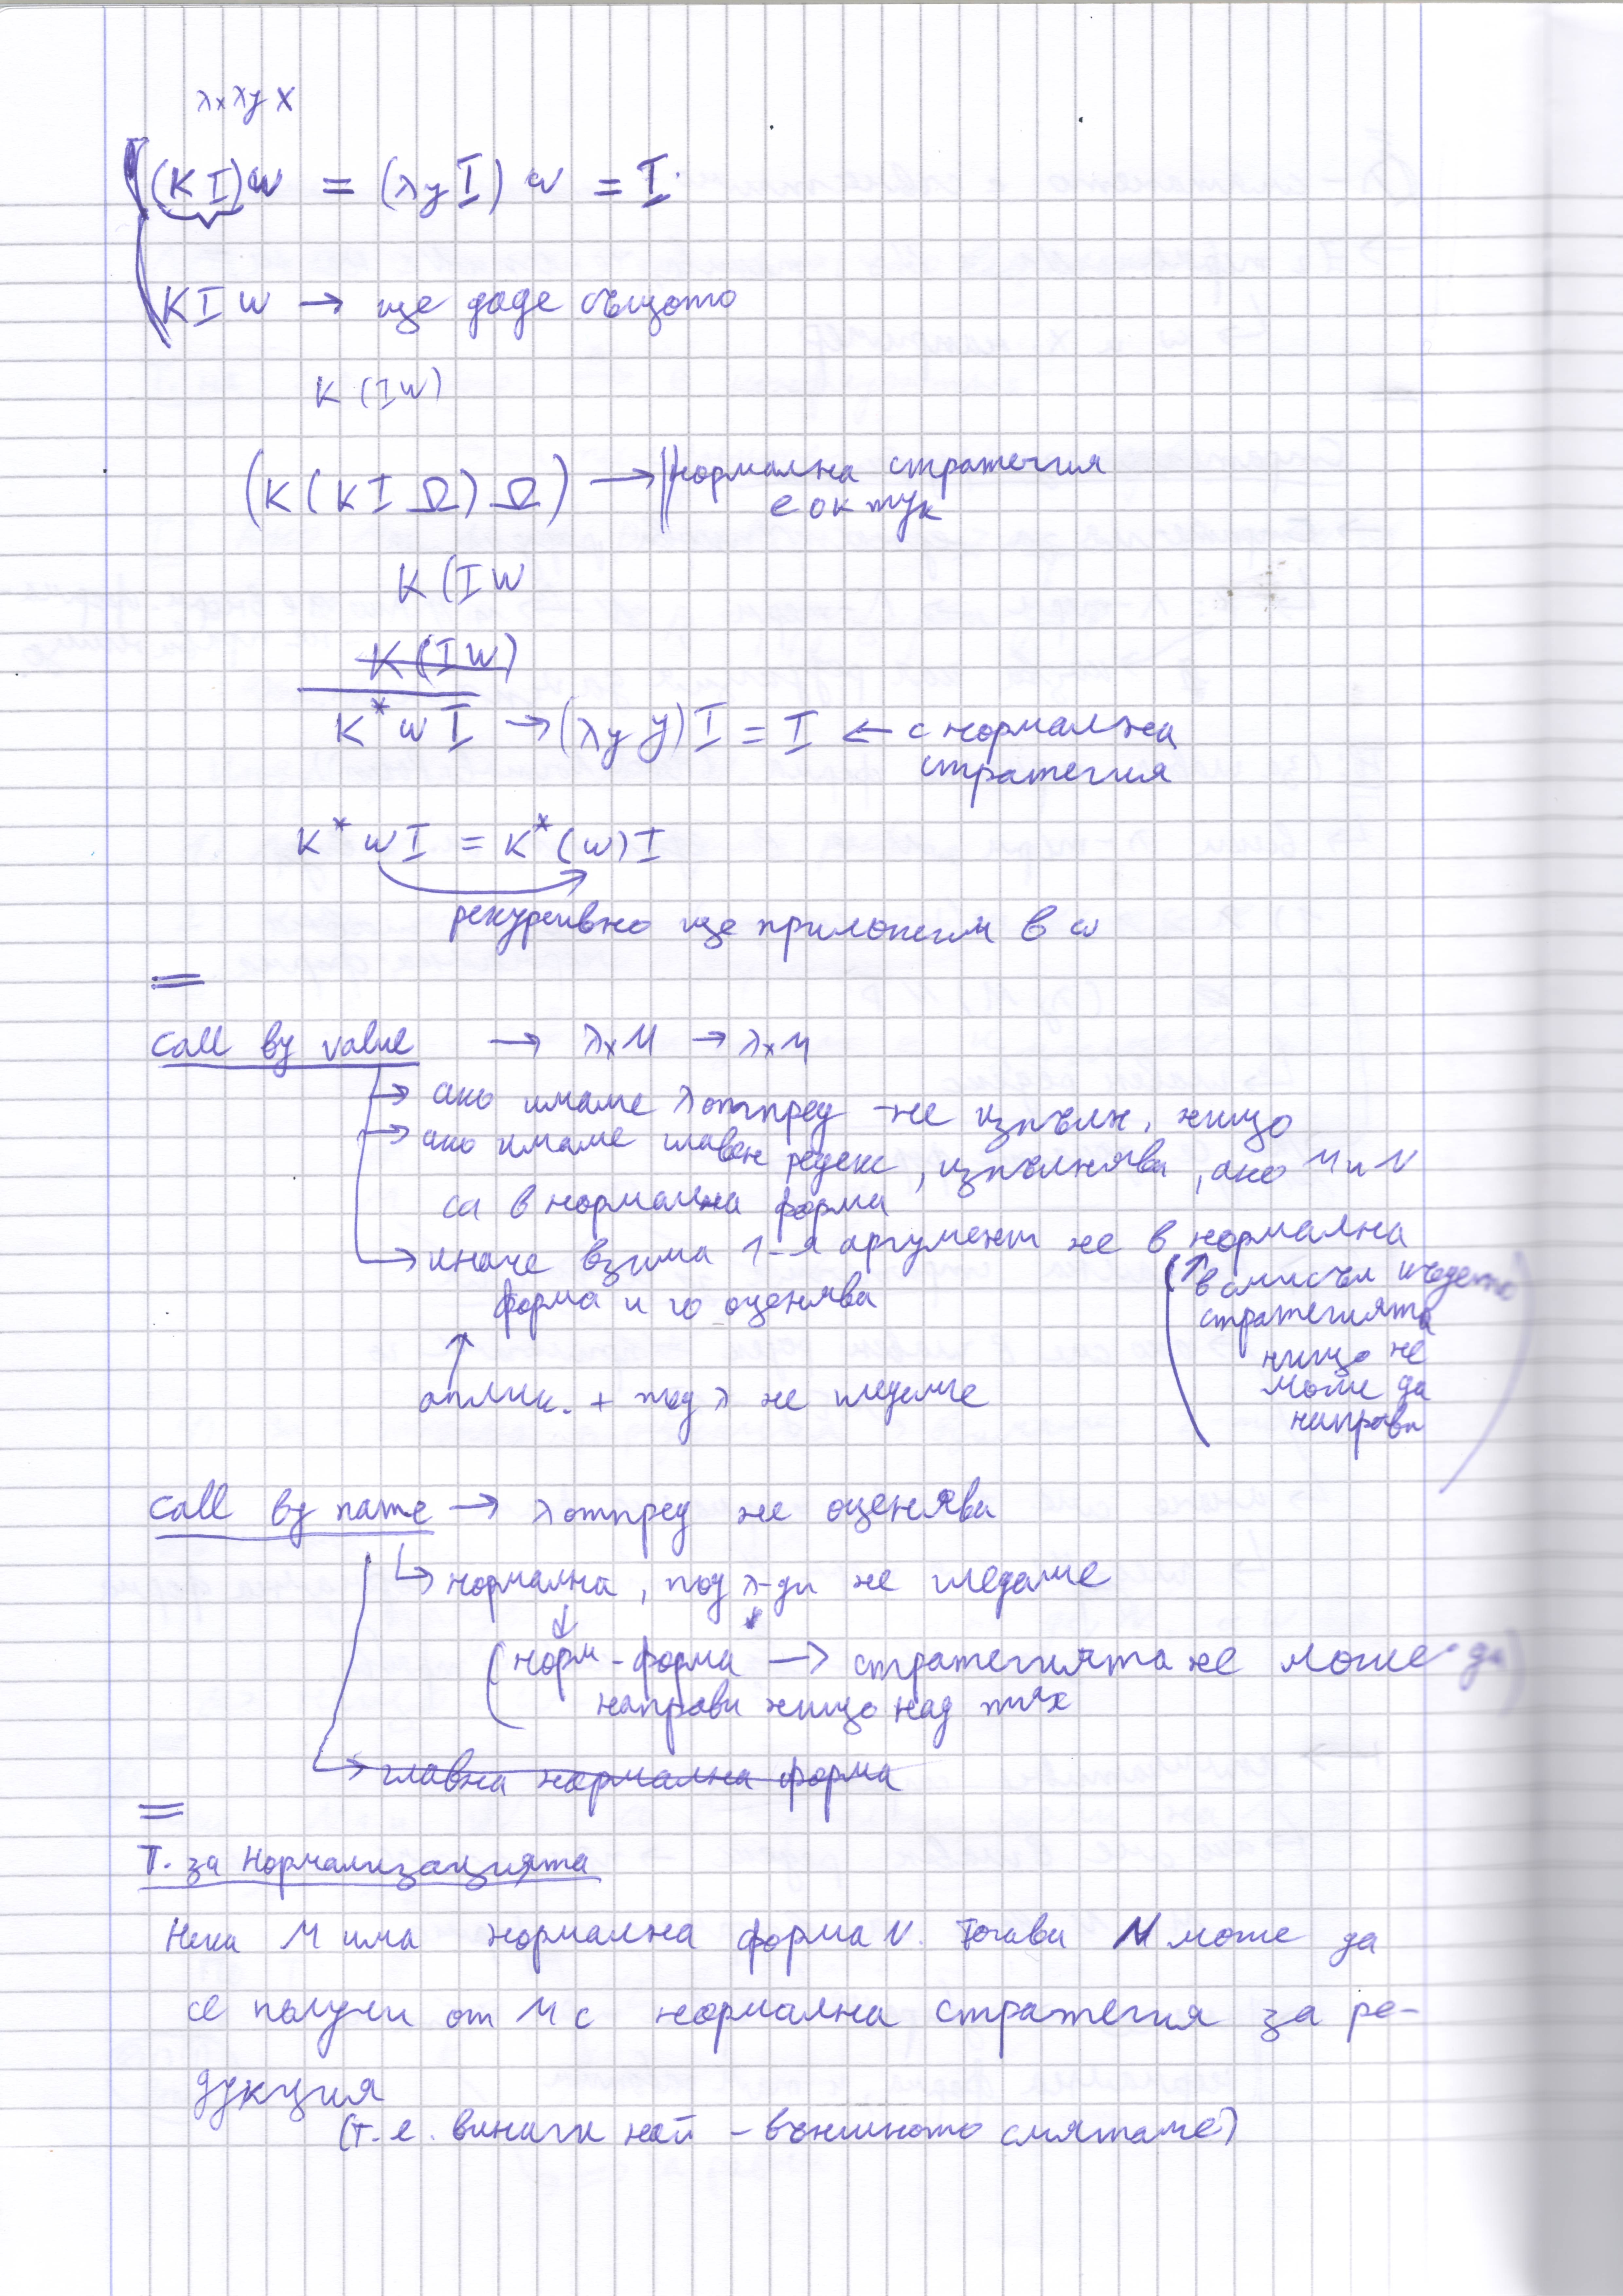 λx λy x
(K I) ω = (λy I) ω = I.
K I ω → ще даде същото
K (I ω)
(K (K I Ω) Ω) → нормална стратегия
е ок тук
K (I ω
K (I ω)
K* ω I → (λy y) I = I ← с нормална
стратегия
K* ω I = K* (ω) I
рекурсивно ще приложим в ω
Call by value → λx M → λx M
→ ако имаме λ отпред - не изпълн. нищо
→ ако имаме главен редекс, изпълнява, ако M и N
са в нормална форма
→ иначе взима 1-я аргумент не в нормална
форма и го оценява
(в смисъл
стратегията
нищо не
може да
направи)
аплик. + под λ не гледаме
Call by name → λ отпред не оценява
↳ нормална, под λ-ди не гледаме
(норм-форма → стратегията не може да
направи нищо над тях
→ главна нормална форма
Т. за Нормализацията
Нека M има нормална форма N. Тогава N може да
се получи от M с нормална стратегия за ре-
дукция
(т.е. винаги най-външното смятаме)